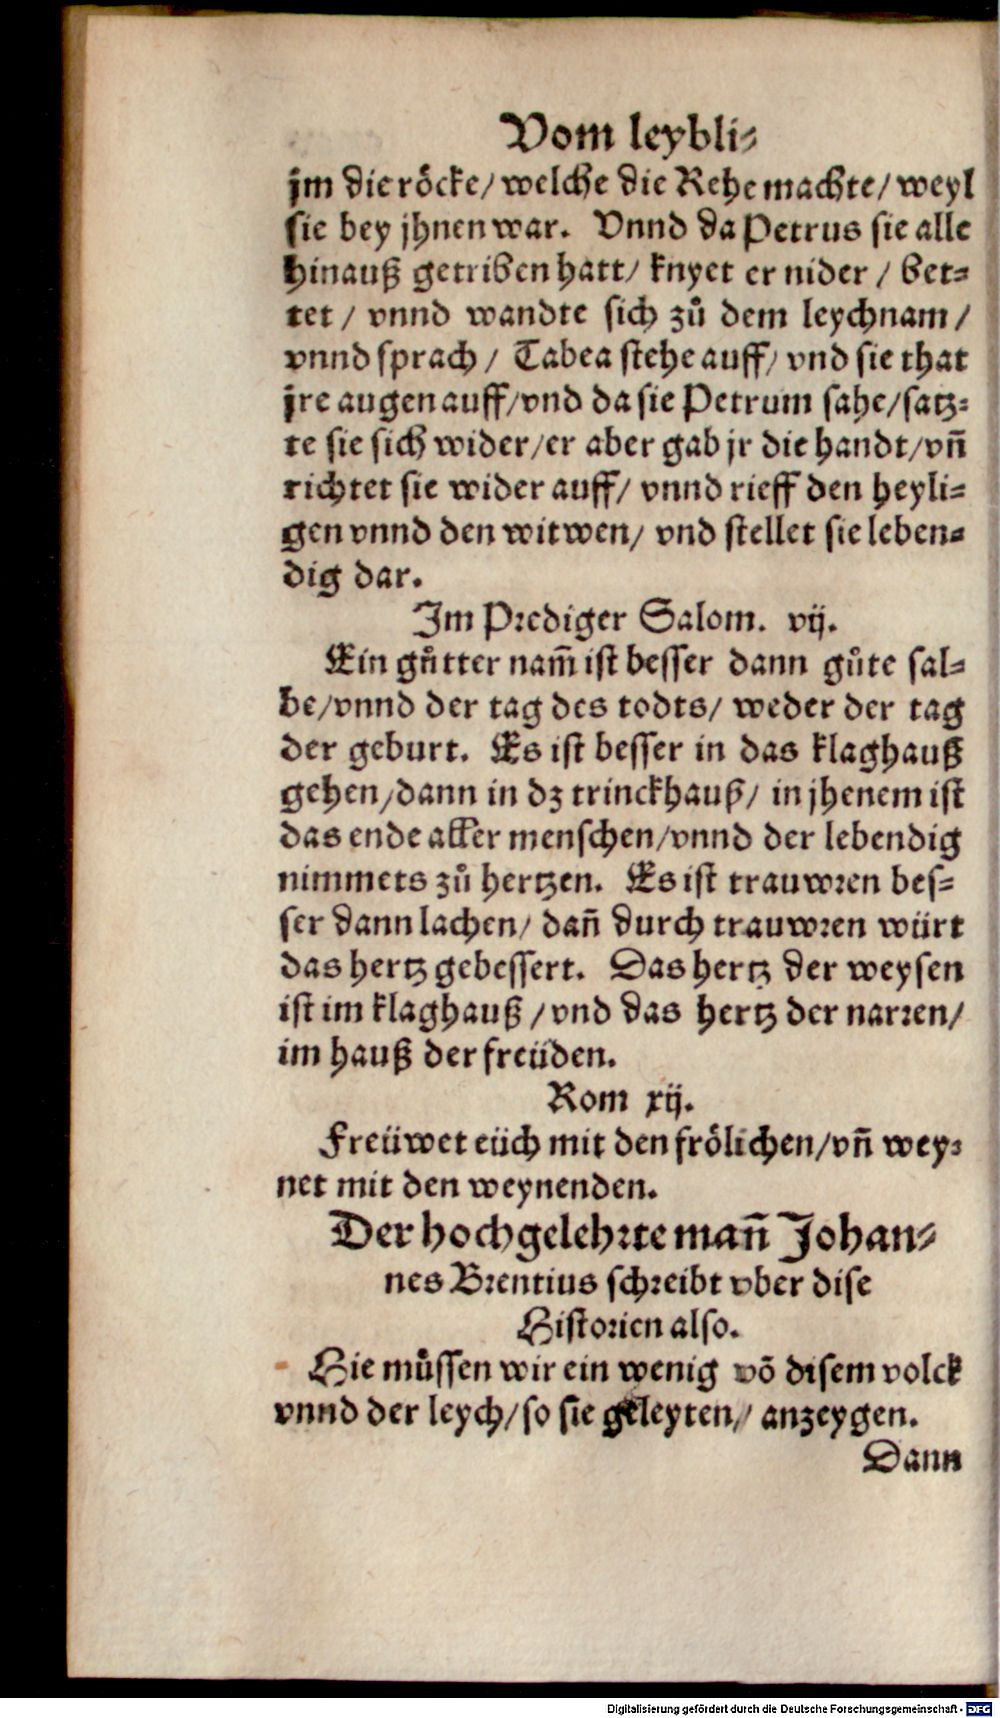 Vom leybli⸗
jm die röcke/ welche die Rehe machte/ weyl
sie bey jhnen war. Vnnd da Petrus sie alle
hinauß getriben hatt/ knyet er nider / bet⸗
tet / vnnd wandte sich zů dem leychnam /
vnnd sprach / Tabea stehe auff/ vnd sie that
jre augen auff/vnd da sie Petrum sahe/satz⸗
te sie sich wider/er aber gab jr die handt/vñ
richtet sie wider auff/ vnnd rieff den heyli⸗
gen vnnd den witwen/ vnd stellet sie leben⸗
dig dar.
Im Prediger Salom. vij.
Ein gůtter nam̃ ist besser dann gůte sal⸗
be/vnnd der tag des todts/ weder der tag
der geburt. Es ist besser in das klaghauß
gehen/dann in dz trinckhauß/ in jhenem ist
das ende aller menschen/vnnd der lebendig
nimmets zů hertzen. Es ist trauwren bes⸗
ser dann lachen/ dañ durch trauwren würt
das hertz gebessert. Das hertz der weysen
ist im klaghauß /vnd das hertz der narren/
im hauß der freüden.
Rom xij.
Freüwet eüch mit den frölichen/vñ wey⸗
net mit den weynenden.
Der hochgelehrte mañ Johan⸗
nes Brentius schreibt vber dise
Historien also.
Hie müssen wir ein wenig võ disem volck
vnnd der leych/so sie geleyten/ anzeygen.
Dann
Digitalisierung gefördert durch die Deutsche Forschungsgemeinschaft - DFG